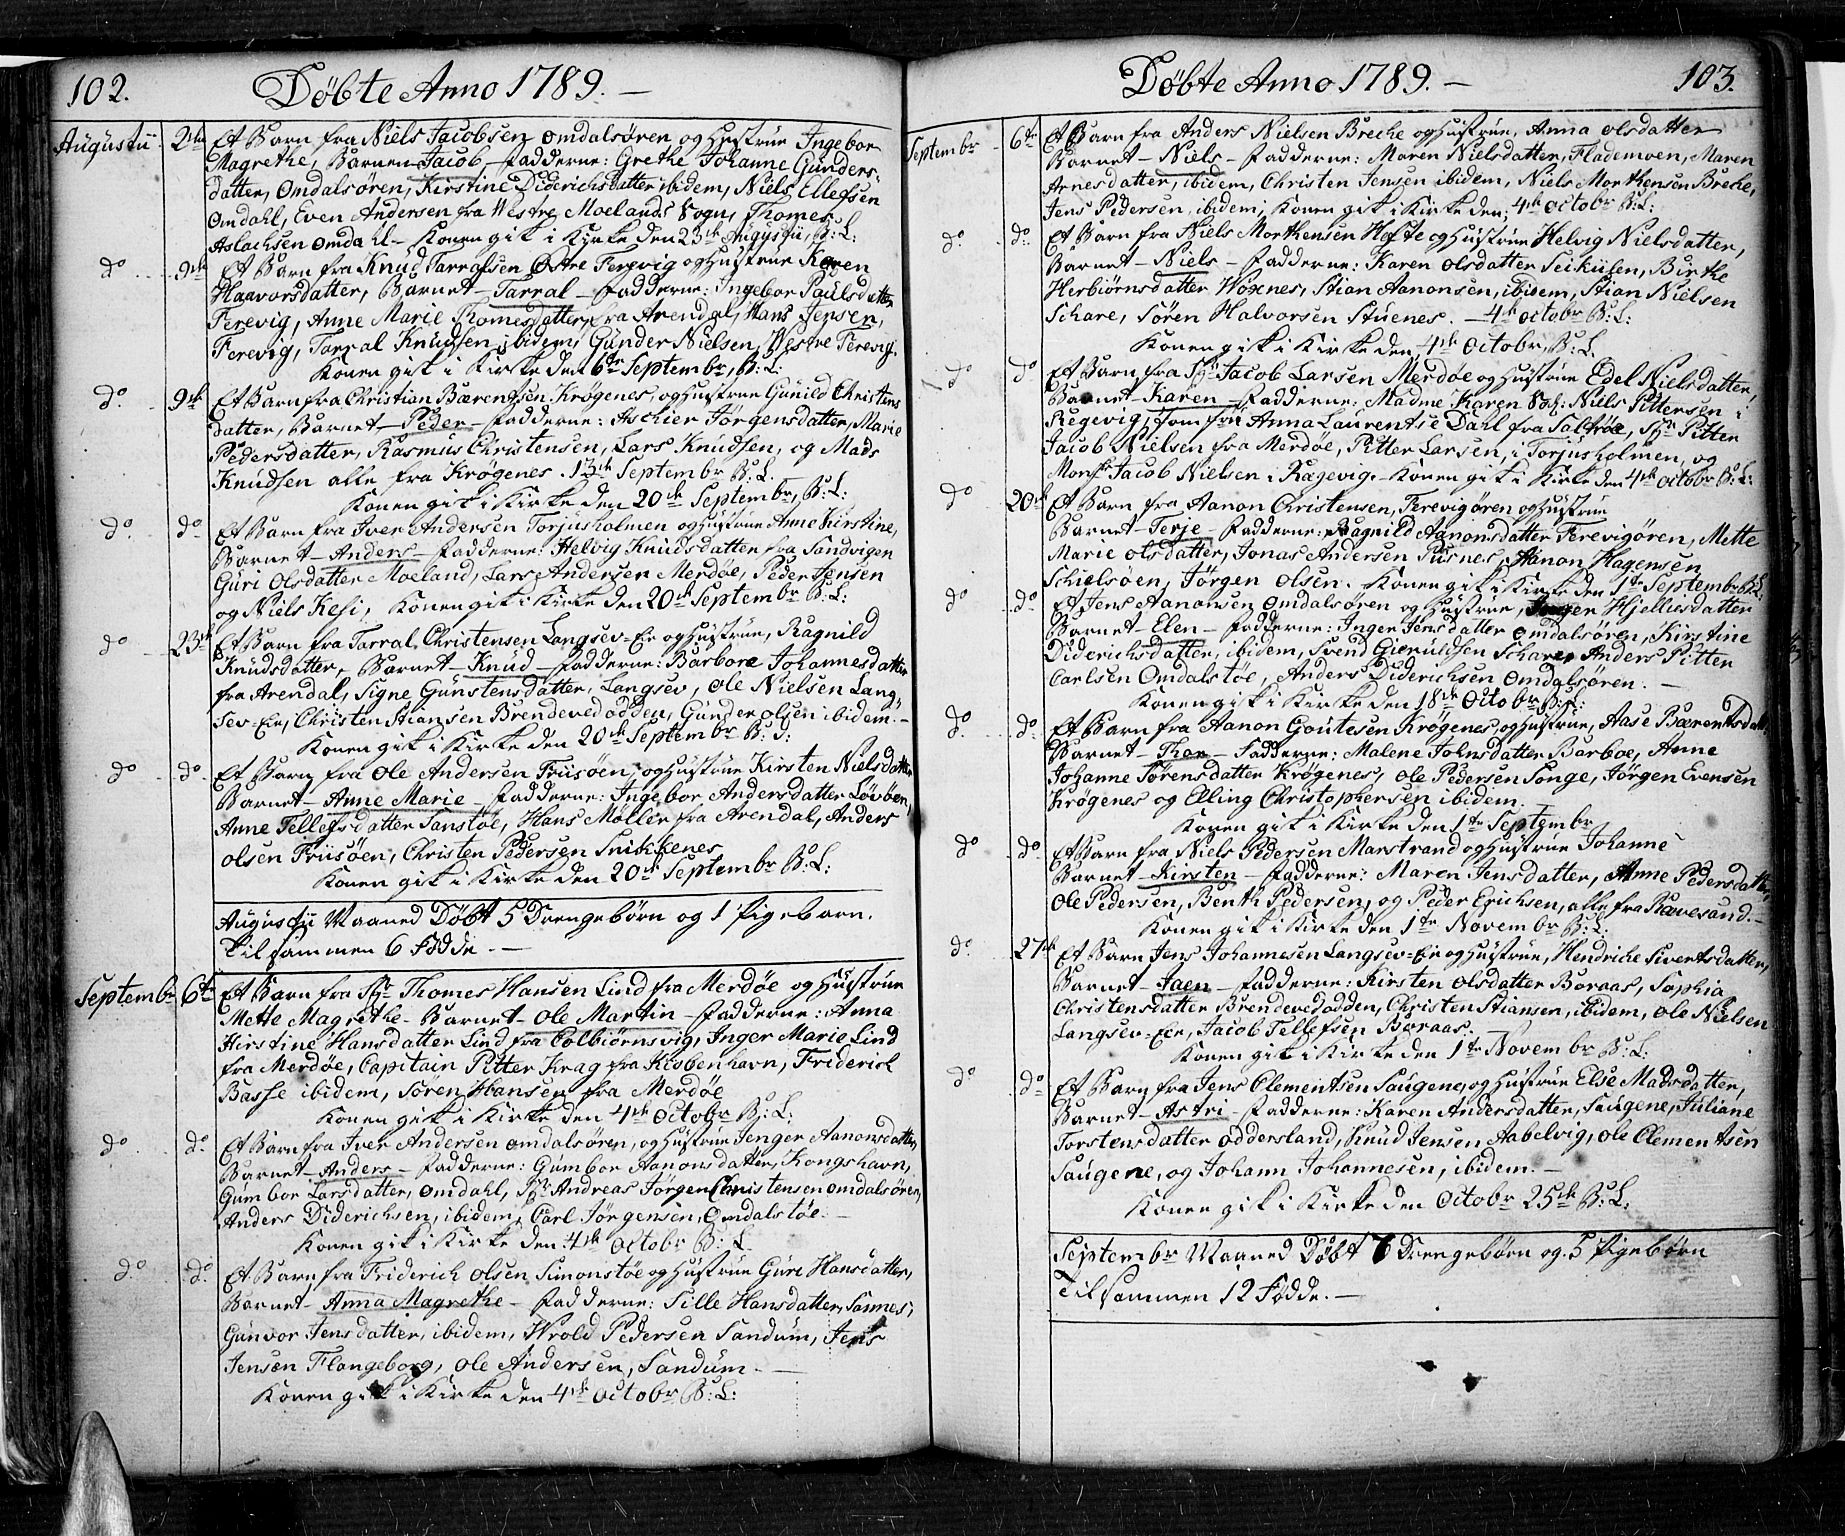 102.
Döbte Anno 1789. —
Augustii 2den Et Barn fra Niels Jacobsen Omdalsøren og Hustrüe Ingebor
Magrethe, Barnen Jacob — Fadderne: Grethe Johanne Gunders-
datter, Omdalsøren, Kirstine Diderichsdatter ibidem, Niels Ellefsen
Omdahl, Even Andersen fra Westre Moelands Sogn, Thomes
Aslachsen Omdahl — Konen gik i Kirke den 23de Augustii, B: L:
do 9de Et Barn fra Knud Tarralsen Østre Ferevig og Hustrüe Karen
Haavorsdatter, Barnet — Tarral — Fadderne: Ingebor Paulsdatter
Ferevig, Anne Marie Thomesdatter, fra Arendal, Hans Jensen,
Ferevig, Tarral Knudsen, ibidem, Gunder Nielsen, Westre Ferevig.
Konen gik i Kirke den 6de Septembr, B: L:
do 9de Et Barn fra Christian Bærentsen Krøgenes, og Hustrüe Gunild Christens
datter, Barnet — Peder — Fadderne: Aschier Jørgensdatter, Marie
Pedersdatter, Rasmus Christensen, Lars Knudsen, og Mads
Knudsen alle fra Krøgenes. 13de Septembr B: L:
Konen gik i Kirke den 20de Septembr, B: L:
do do Et Barn fra Iver Andersen Torjusholmen og Hustrüe Anne Kirstine,
Barnet — Anders — Fadderne: Helvig Knudsdatter fra Sandvigen
Guri Olsdatter Moeland, Lars Andersen Merdøe, Peder Jensen
og Niels Kesi, Konen gik i Kirke den 20de Septembr B: L:
do 23de Et Barn fra Tarral Christensen Langsev-Eie og Hustrüe, Ragnild
Knudsdatter, Barnet — Knud — Fadderne: Barbore Johannesdatter
fra Arendal, Signe Gunstensdatter, Langsev, Ole Nielsen Lang-
sev-Eie, Christen Stiansen Brendevedodden, Gunder Olsen ibidem. —
Konen gik i Kirke den 20de Septembr B: L:
do do Et Barn fra Ole Andersen Friisøen, og Hustrüe Kirsten Nielsdatter
Barnet — Anne Marie — Fadderne: Ingebor Andersdatter Løvøen,
Anne Tellefsdatter Sanstøe, Hans Møller fra Arendal, Anders
Olsen Friisøen, Christen Pedersen Snikkenes
Konen gik i Kirke den 20de Septembr B: L:
Augustii Maaned Döbt 5 Drengebørn og 1 Pigebarn.
Tilsammen 6 Fødde. —
Septembr 6te Et Barn fra Sgr Thomes Hansen Lind fra Merdøe og Hustrüe
Mette Magrethe — Barnet — Ole Martin — Fadderne: Anna
Kirstine Hansdatter Lind fra Colbiørnsvig, Inger Marie Lind
fra Merdøe, Capitain Pitter Krag fra Kiøbenhavn, Friderich
Basse ibidem, Søren Hansen fra Merdøe
Konen gik i Kirke den 4de Octobr B: L:
do do Et Barn fra Iver Andersen Omdalsøren, og Hustrüe Jenger Aanonsdatter,
Barnet — Anders — Fadderne: Gumbor Aanonsdatter, Kongshavn,
Gumbor Larsdatter, Omdahl, Sgr Andreas Jørgen Christensen Omdalsøren,
Anders Diderichsen, ibidem, Carl Jørgensen, Omdalstøe. —
Konen gik i Kirke den 4de Octobr B: L
do do Et Barn fra Friderich Olsen Simonstøe og Hustrüe Guri Hansdatter,
Barnet — Anna Magrethe — Fadderne: Sille Hansdatter, Sannes,
Gunvor Jensdatter, ibidem, Wrold Pedersen Sandum, Jens
Jensen Flangeborg, Ole Andersen, Sandum —
Konen gik i Kirke den 4de Octobr B: L:
103.
Döbte Anno 1789. —
Septembr 6te Et Barn fra Anders Nielsen Breche og Hustrüe, Anna Olsdatter
Barnet — Niels — Fadderne: Maren Nielsdatter, Flademoen, Maren
Arnesdatter, ibidem, Christen Jensen ibidem, Niels Morthensen Breche,
Jens Pedersen, ibidem; Konen gik i Kirke den 4de Octobr B: L:
do do Et Barn fra Niels Morthensen Høfte og Hustrüe Helvig Nielsdatter,
Barnet — Niels — Fadderne: Karen Olsdatter Seikusen, Birthe
Herbiørnsdatter Woxnes, Stian Aanonsen, ibidem, Stian Nielsen
Schare, Søren Halvorsen Stuenes. — 4de Octobr B: L:
Konen gik i Kirke den 4de Octobr, B: L.
do do Et Barn fra Sgr Jacob Larsen Merdøe og Hustrüe Edel Nielsdatter,
Barnet — Karen — Fadderne: Madme Karen Sal: Niels Pittersen i
Regevig, Jomfru Anna Laurentse Dahl fra Saltrøe, Sgr Pitter
Jacob Nielsen fra Merdøe, Pitter Larsen, i Torjusholmen, og
Monsr Jacob Nielsen i Rægevig. — Konen gik i Kirke den 4de Octobr B: L:
do 20de Et Barn, fra Aanon Christensen, Ferevigøren og Hustrüe
Barnet — Terje — Fadderne: Ragnild Aanonsdatter Ferevigøren, Mette
Marie Olsdatter, Jonas Andersen Pusnes, Aanon Hagensen
Schielsøen, Jørgen Olsen. Konen gik i Kirke den 1te Septembr B: L:
do do Et Jens Aanonsen Omdalsøren og Hustrüe, Inger Hjelliesdatter
Barnet — Elen — Fadderne: Inger Jensdatter Omdalsøren, Kirstine
Diderichsdatter, ibidem, Svend Gierulfsen Schare, Anders Pitter
Carlsen Omdalstøe, Anders Diderichsen Omdalsøren. —
Konen gik i Kirke den 18de Octobr B: L:
do do Et Barn fra Aanon Goutesen Krøgenes, og Hustrüe, Aase Bærentsdatter
Barnet — Thor — Fadderne: Malene Johnsdatter Barboe, Anne
Johanne Sørensdatter Krøgenes, Ole Pedersen Songe, Jørgen Evensen
Krøgenes og Elling Christophersen ibidem.
Konen gik i Kirke den 1te Septembr
do do Et Barn fra Niels Pedersen Marstrand og Hustrüe Johanne
Barnet — Kirsten — Fadderne: Maren Jensdatter, Anne Pedersdatter,
Ole Pedersen, Benth Pedersen, og Peder Erichsen, alle fra Rævesand. —
Konen gik i Kirke den 1te Novembr B: L:
do 27de Et Barn Jens Johannesen Langsev-Eie og Hustrüe, Hendriche Sivertsdatter,
Barnet — Jaen — Fadderne: Kirsten Olsdatter Boraas, Sophia
Christensdatter Brendevedodden, Christen Stiansen, ibidem, Ole Nielsen
Langsev-Eie, Jacob Tellefsen Boraas.
Konen gik i Kirke den 1te Novembr B: L:
do do Et Barn fra Jens Clementsen Saugene, og Hustrüe Else Madsdatter,
Barnet — Astri — Fadderne: Karen Andersdatter, Saugene, Juliane
Torstensdatter Oddersland, Knud Jensen Aabelvig, Ole Clementsen
Saugene, og Johann Johannesen, ibidem. —
Konen gik i Kirke den Octobr 25de B: L:
Septembr Maaned Döbt 7 Drengebørn og 5 Pigebørn
Tilsammen 12 Fødde. —